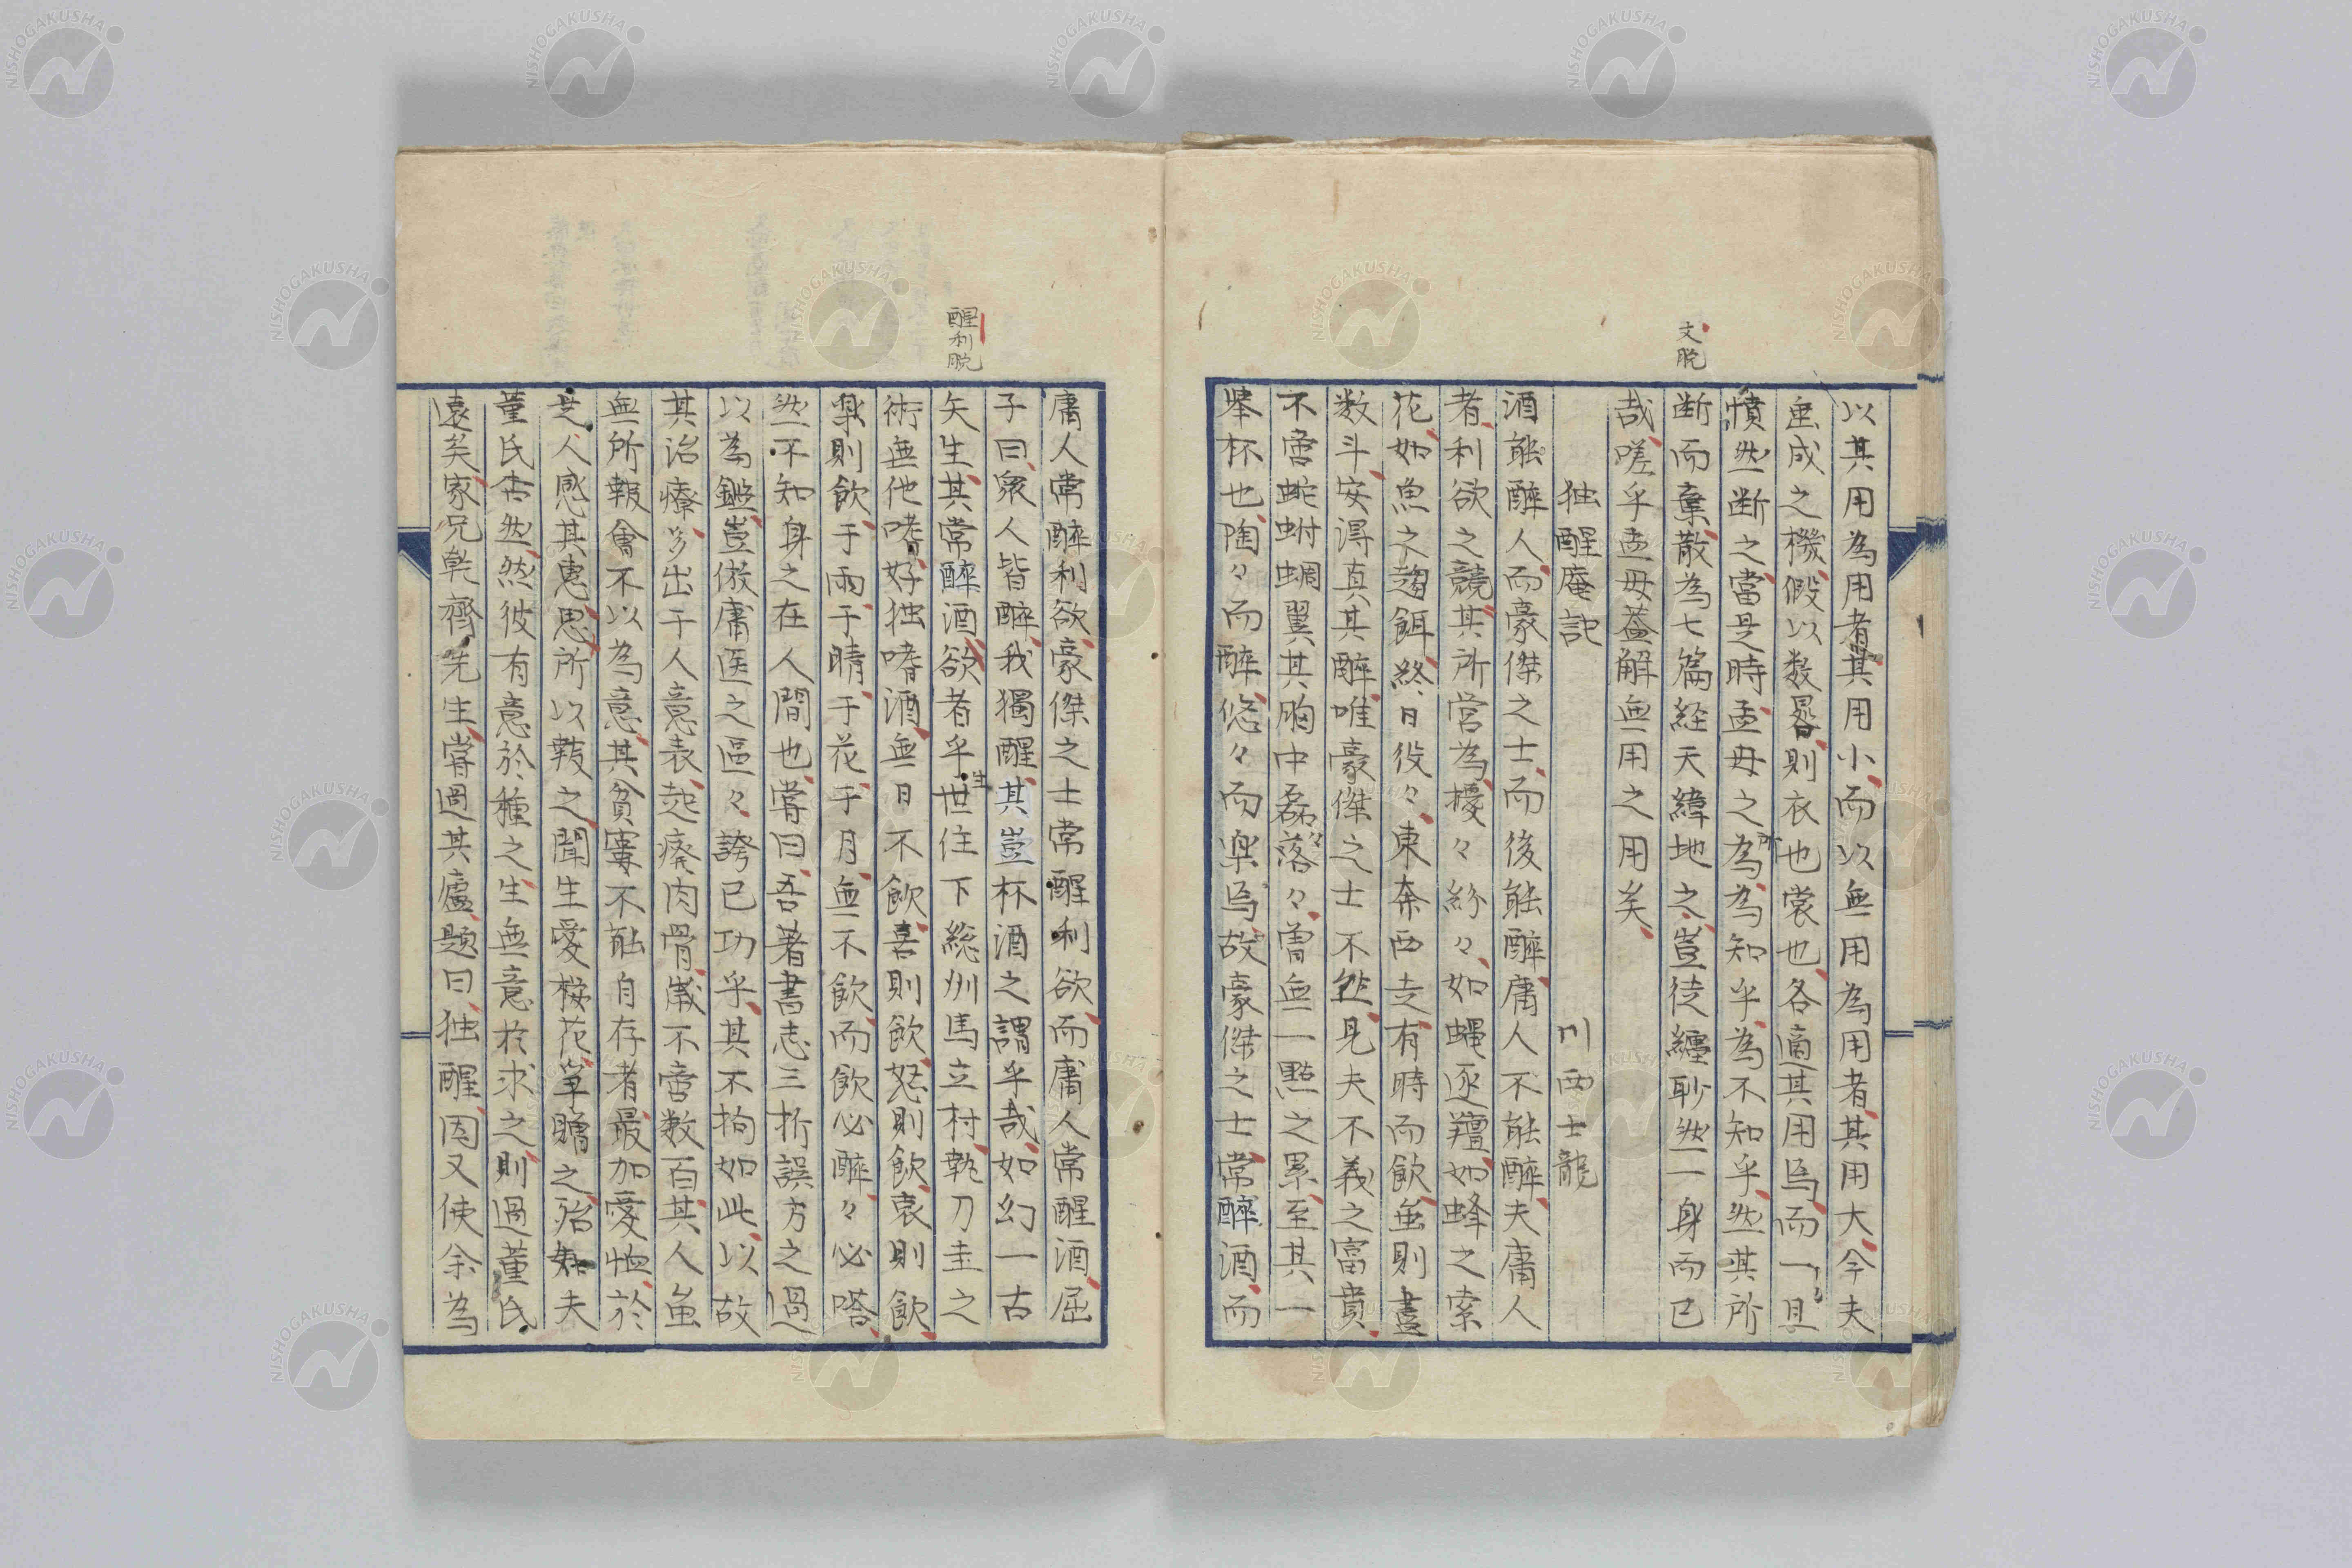 以其用為用者其用小而以無用為用者其用大今夫
垂成之機假以数晷則衣也裳也各適其用焉而一旦
憤然断之當是時孟母之所為為知乎為不知乎然其所
断而棄散為七篇経天緯地之文豈徒纏眇然一身而已
哉嗟乎孟母蓋解無用之用矣
独醒庵記 川西士龍
酒能醉人而豪傑之士而後能醉庸人不能醉夫庸人
者利欲之競其所営為擾々紛々如蝿逐羶如蜂之索
花如魚之趨餌終日役々東奔西走有時而飲虽則盡
数斗安得真其醉唯豪傑之士不然見夫不義之富貴
不啻蛇蚹蜩翼其胸中磊々落々曽無一點之累至其一
挙杯也陶々而醉悠々而楽焉故豪傑之士常醉酒而
文脱
庸人常醉利欲豪傑之士常醒利欲而庸人常醒酒屈
子曰衆人皆醉我獨醒其豈杯酒之謂乎哉如幻一古
矢生其常醉酒欲者乎生世住下総州馬立村執刀圭之
術無他嗜好独嗜酒無日不飲喜則飲怒則飲哀則飲
楽則飲于雨于晴于花于月無不飲而飲必醉々必嗒
然不知身之在人間也嘗曰吾著書志三折誤方之過
以為鑑豈倣庸医之區々誇已功乎其不拘如此以故
其治療多出于人意表起癈肉骨歳不啻数百其人虽
無所報會不以為意其貧寠不能自存者最加愛恤於
是人感其恵思所以報之聞生愛桜花争贈之殆如夫
董氏杏然然彼有意於種之生無意於求之則過董氏
遠矣家兄乾齋先生嘗過其廬題曰独醒因又使余為
醒利脱